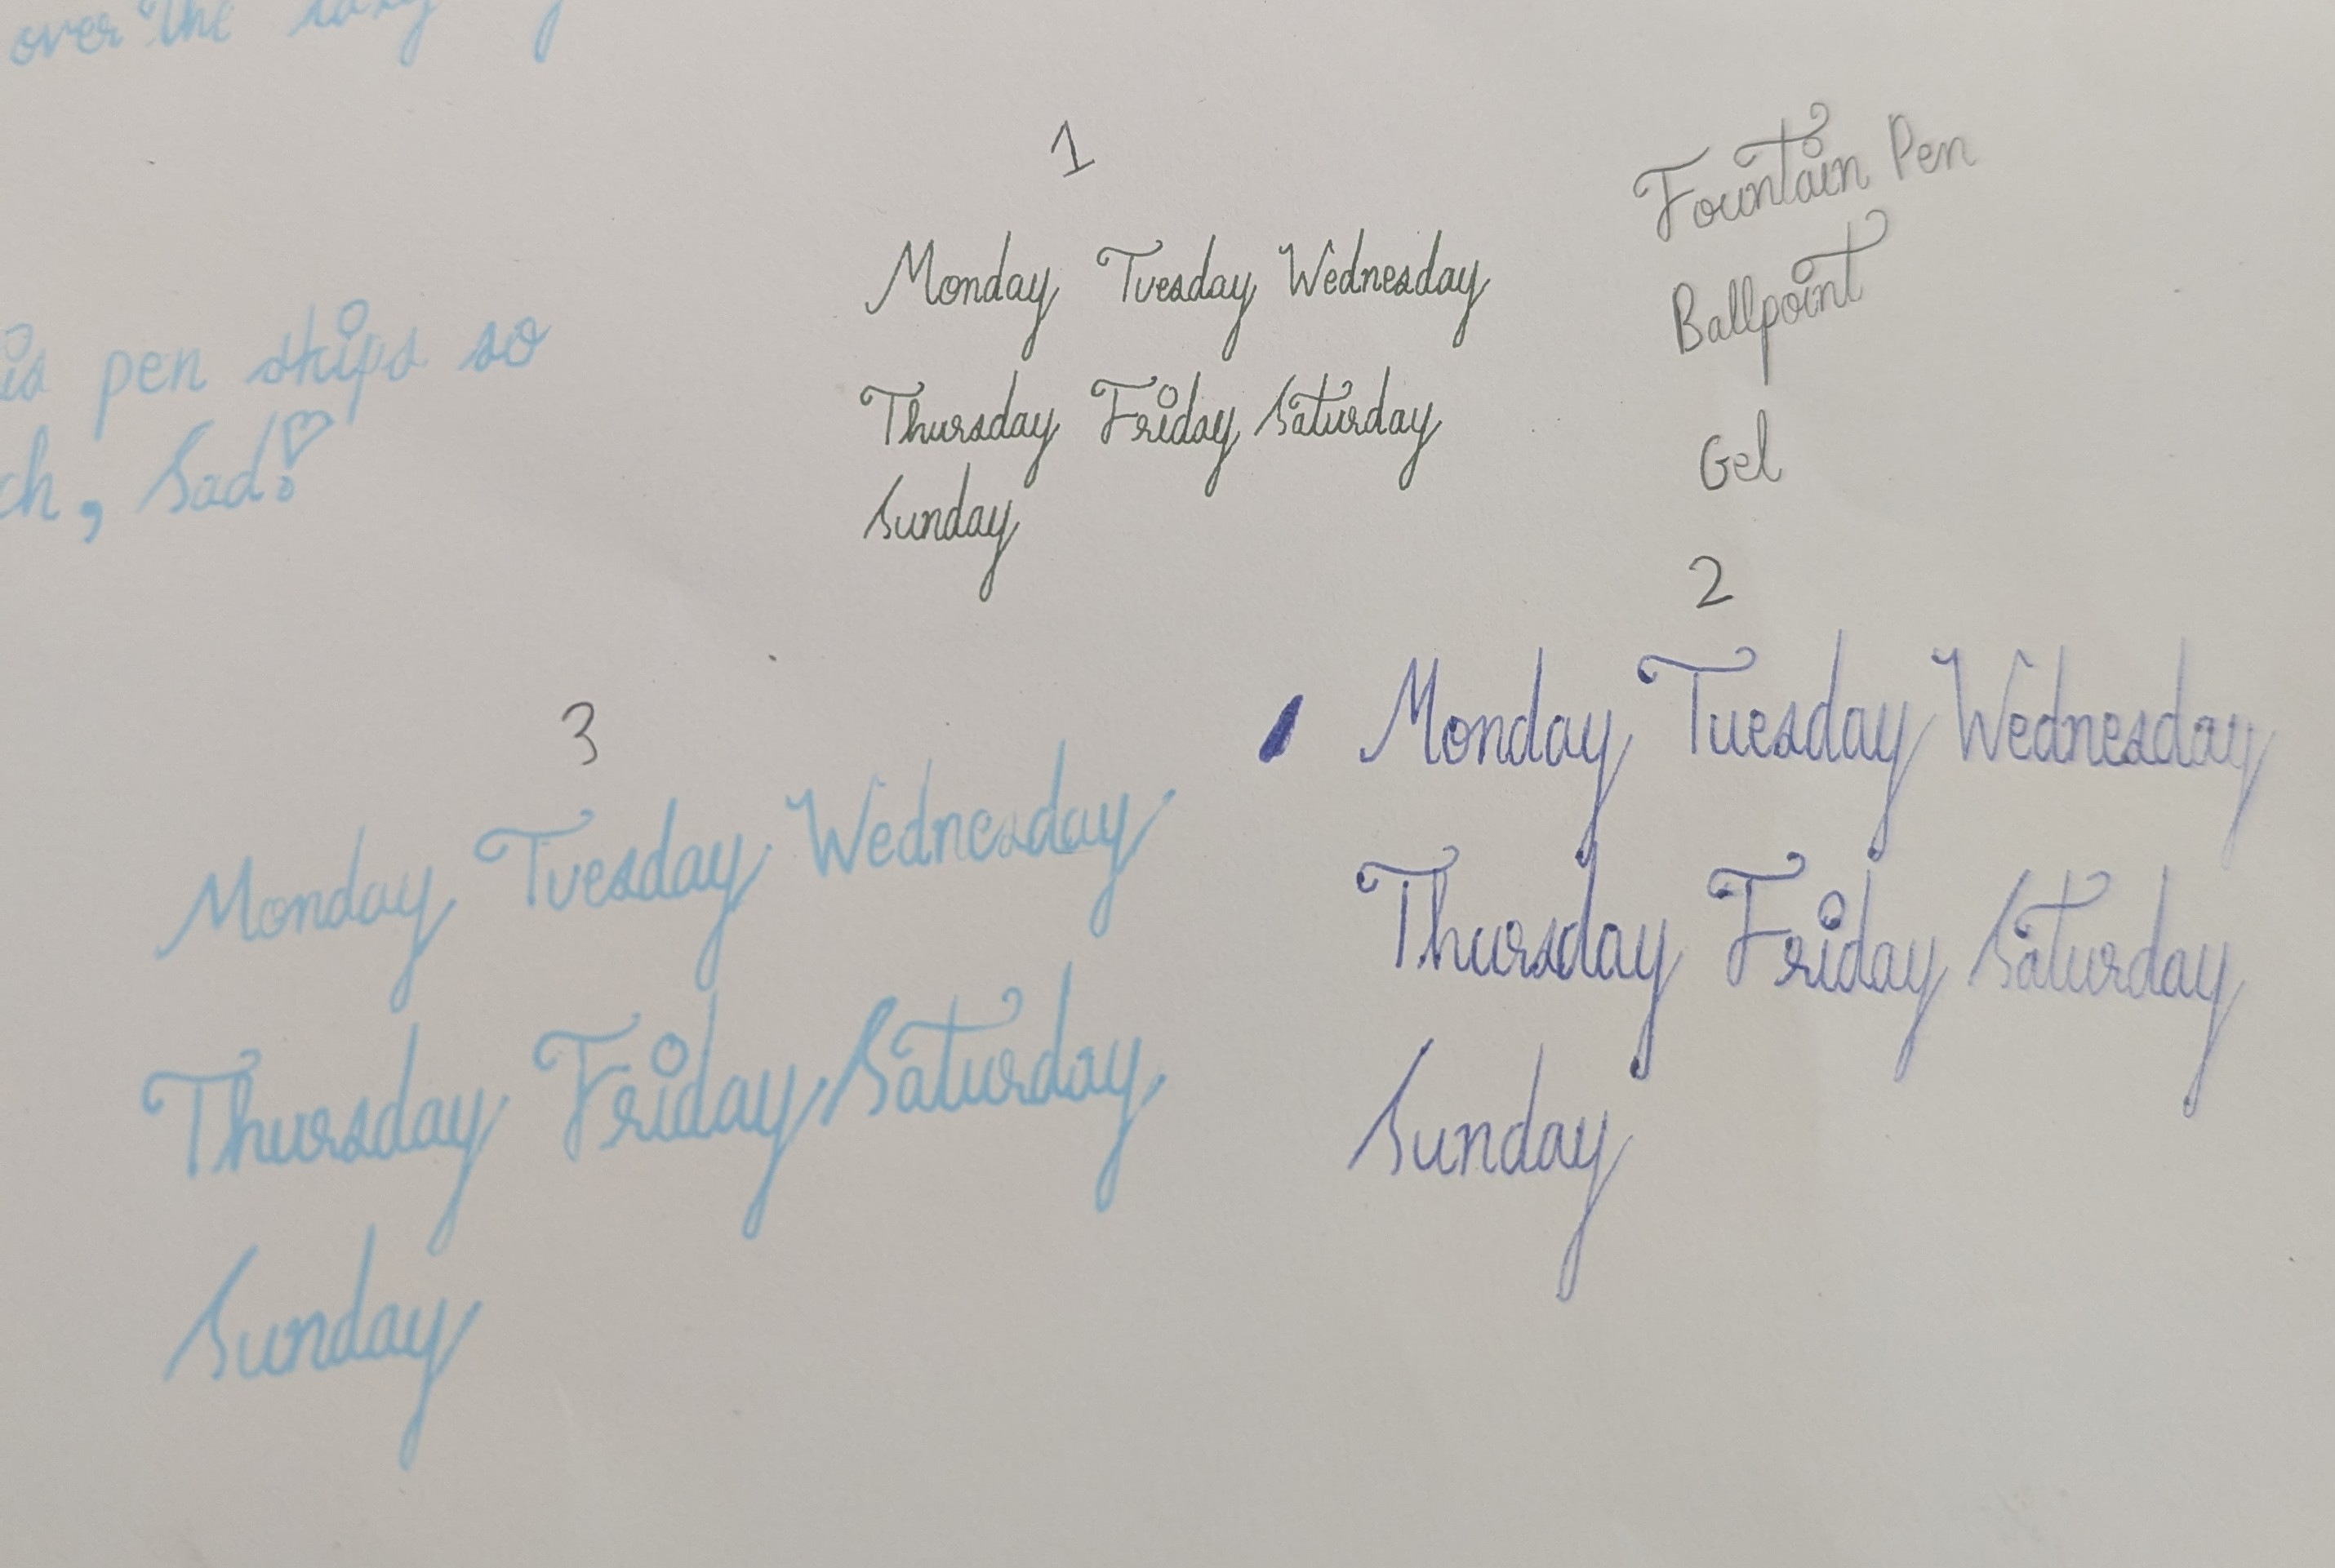 over the lazy
is pen skips so
ch, Sad!
1
Monday Tuesday Wednesday
Thursday Friday Saturday
Sunday
Fountain Pen
Ballpoint
Gel
2
Monday Tuesday Wednesday
Thursday Friday Saturday
Sunday
3
Monday Tuesday Wednesday
Thursday Friday Saturday
Sunday